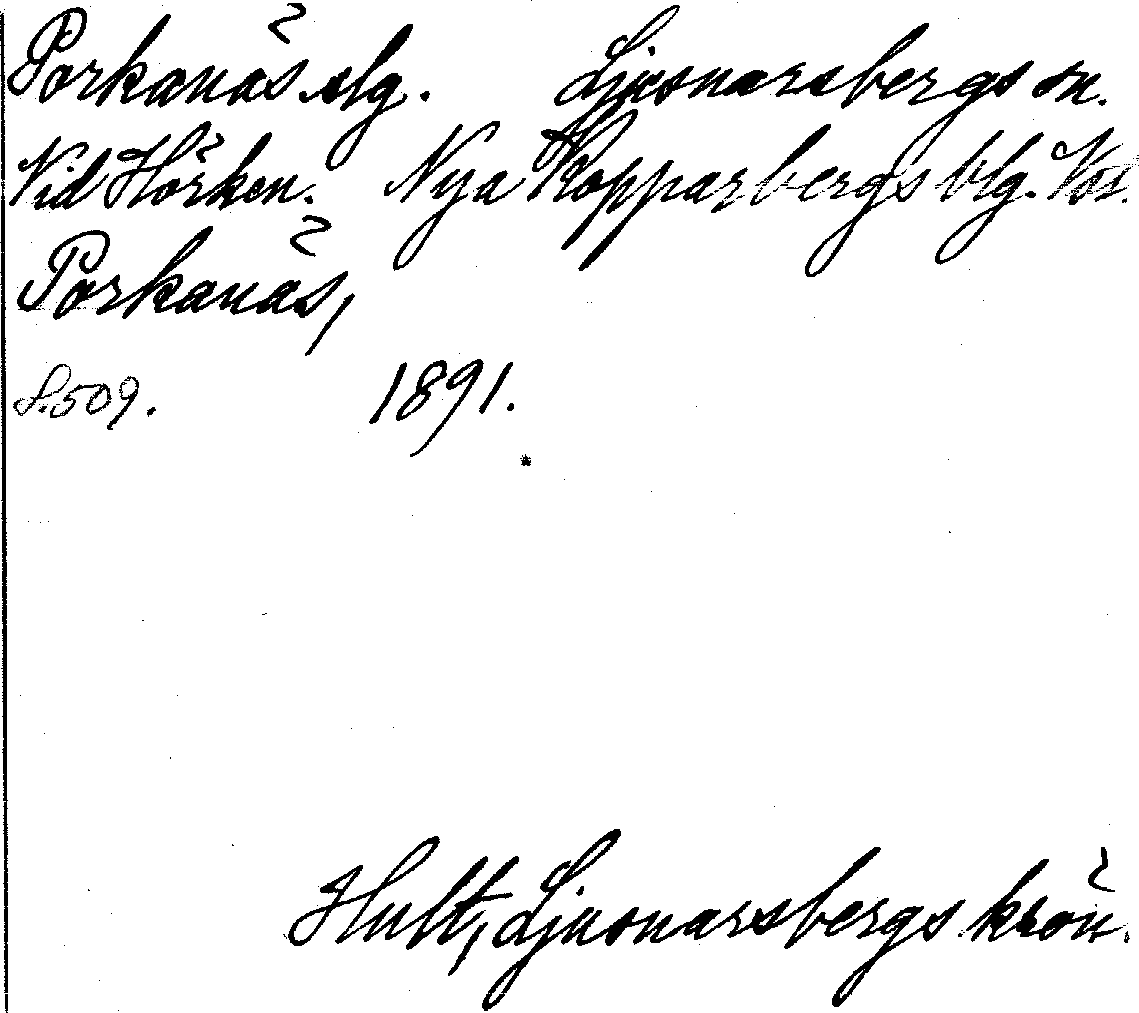 Porkanäs slg. Ljusnarsbergs sn.
Vid Hörken. Nya Kopparbergs blg. Vstm.
Porkanäs,
S. 509. 1891.
Hult, Ljusnarsbergs krön.